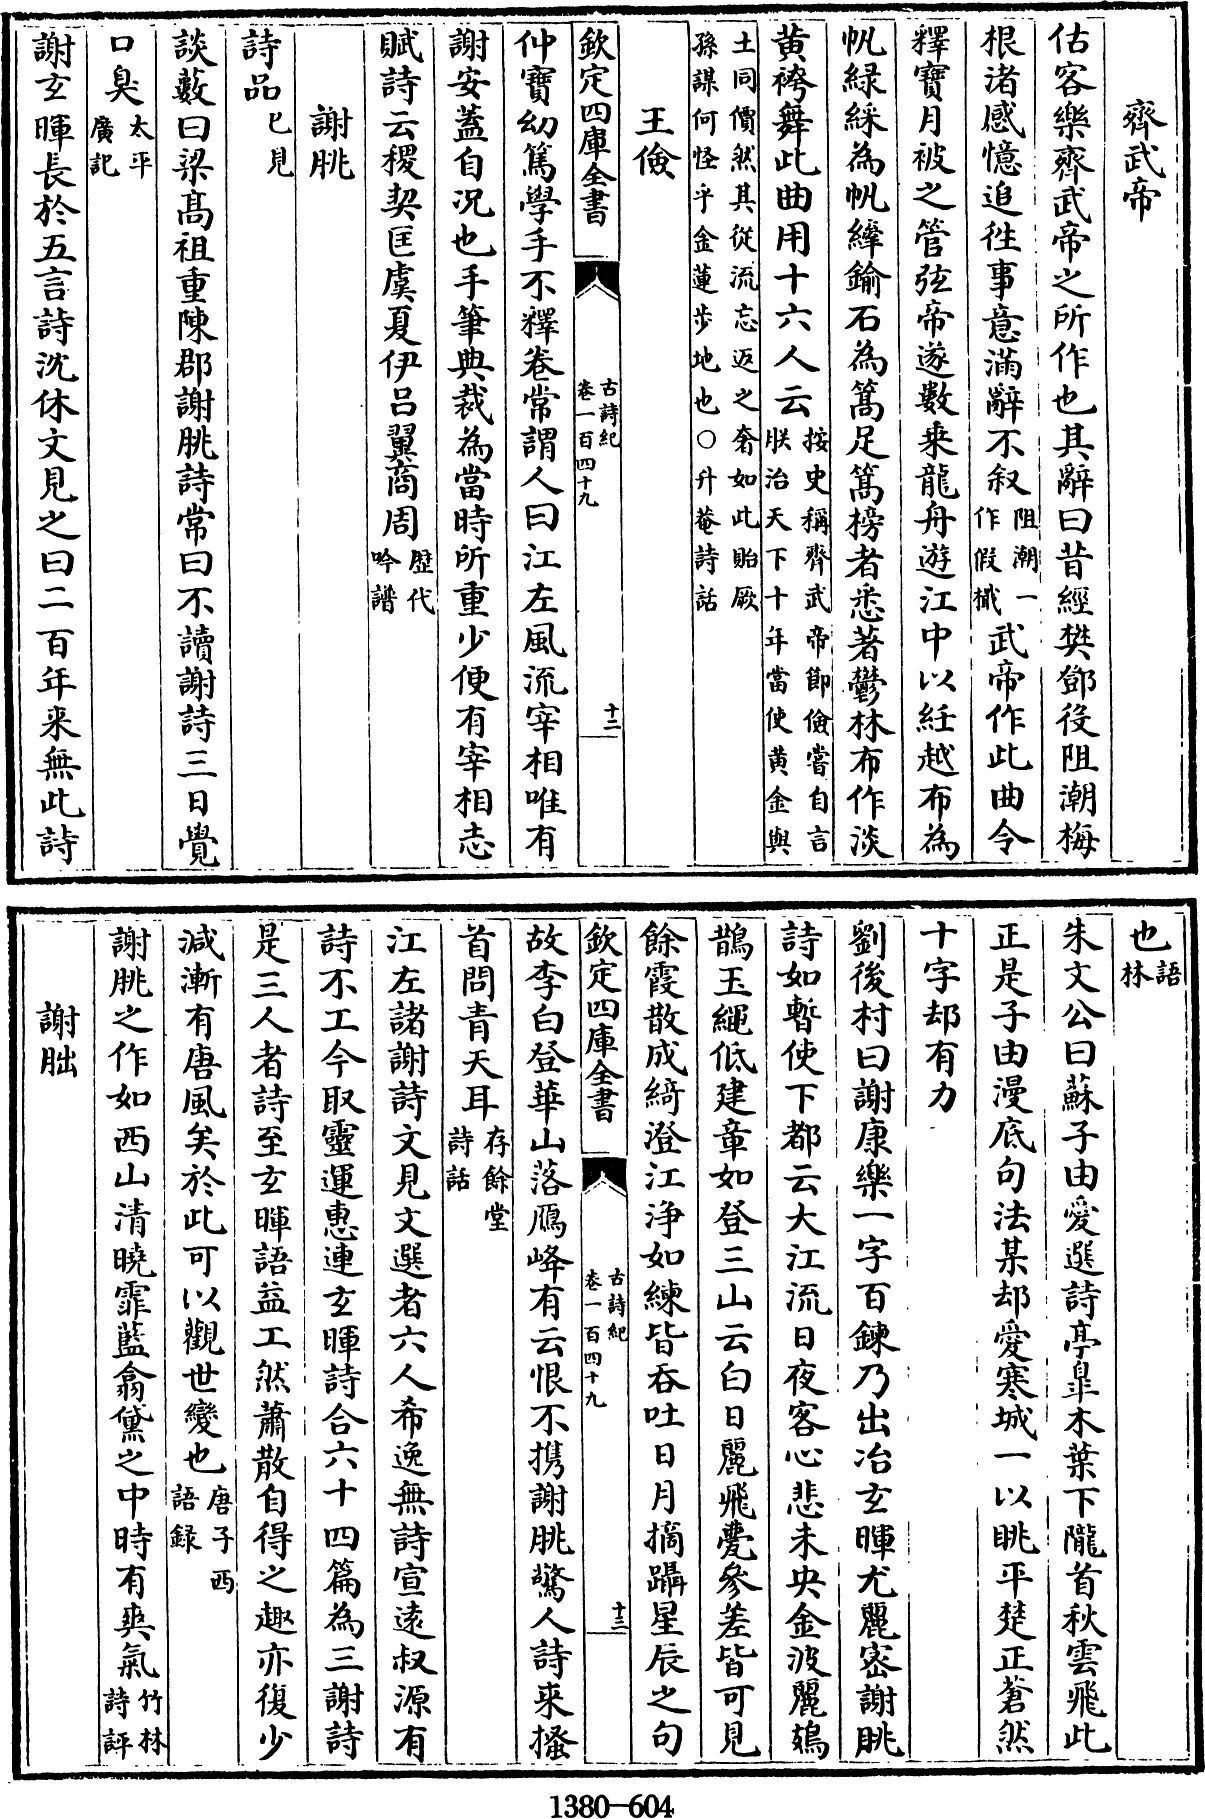 齊武帝
估客樂齊武帝之所作也其辭曰昔經樊鄧役阻潮梅
根渚感憶追徃事意滿辭不叙阻潮一作假檝武帝作此曲令
釋寶月被之管弦帝遂數乗龍舟遊江中以紝越布為
帆緑綵為帆縴鍮石為篙足篙榜者悉著鬱林布作淡
黄袴舞此曲用十六人云按史稱齊武帝節儉嘗自言朕治天下十年當使黄金與
土同價然其從流忘返之奢如此貽厥孫謀何怪乎金蓮步地也○升菴詩話
王儉
欽定四庫全書
古詩紀
卷一百四十九
十二
仲寶幼篤學手不釋卷常謂人曰江左風流宰相唯有
謝安葢自况也手筆典裁為當時所重少便有宰相志
賦詩云稷契匡虞夏伊吕翼商周歴代吟譜
謝朓
詩品已見
談藪曰梁髙祖重陳郡謝朓詩常曰不讀謝詩三日覺
口臭太平廣記
謝玄暉長於五言詩沈休文見之曰二百年来無此詩
也語林
朱文公曰蘇子由愛選詩亭臯木葉下隴首秋雲飛此
正是子由漫底句法某却愛寒城一以眺平楚正蒼然
十字却有力
劉後村曰謝康樂一字百鍊乃出冶玄暉尤麗密謝朓
詩如暫使下都云大江流日夜客心悲未央金波麗鳷
鵲玉繩低建章如登三山云白日麗飛甍參差皆可見
餘霞散成綺澄江浄如練皆吞吐日月摘躡星辰之句
欽定四庫全書
古詩紀
卷一百四十九
十三
故李白登華山落鴈峰有云恨不携謝朓驚人詩来搔
首問青天耳存餘堂詩話
江左諸謝詩文見文選者六人希逸無詩宣遠叔源有
詩不工今取靈運惠連玄暉詩合六十四篇為三謝詩
是三人者詩至玄暉語益工然蕭散自得之趣亦復少
減漸有唐風矣於此可以觀世變也唐子西語録
謝朓之作如西山清曉霏藍翕黛之中時有爽氣竹林詩評
謝朏
1380-604